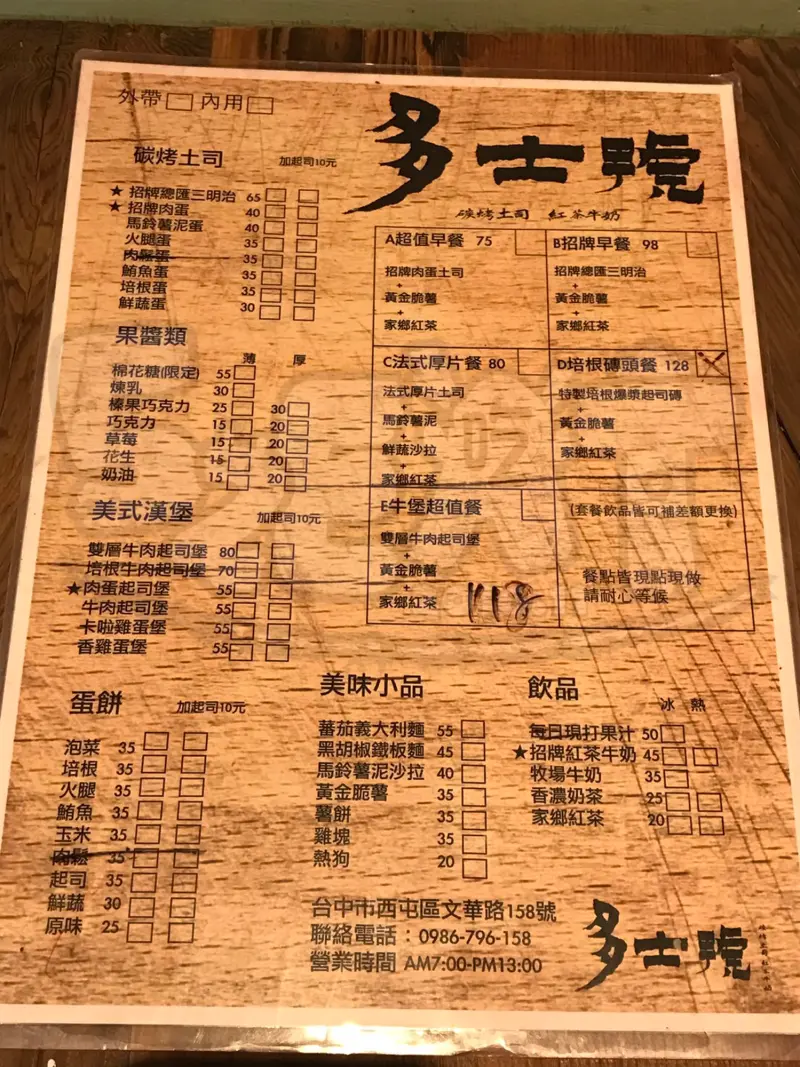 外帶 內用
多士號
碳烤土司 紅茶牛奶
碳烤土司 加起司10元
★ 招牌總匯三明治 65
★ 招牌肉蛋 40
馬鈴薯泥蛋 40
火腿蛋 35
肉鬆蛋 35
鮪魚蛋 35
培根蛋 35
鮮蔬蛋 30
果醬類
薄 厚
棉花糖(限定) 55
煉乳 30
榛果巧克力 25 30
巧克力 15 20
草莓 15 20
花生 15 20
奶油 15 20
美式漢堡 加起司10元
雙層牛肉起司堡 80
培根牛肉起司堡 70
★肉蛋起司堡 55
牛肉起司堡 55
卡啦雞蛋堡 55
香雞蛋堡 55
A超值早餐 75
招牌肉蛋土司
+
黃金脆薯
+
家鄉紅茶
B招牌早餐 98
招牌總匯三明治
+
黃金脆薯
+
家鄉紅茶
C法式厚片餐 80
法式厚片土司
+
馬鈴薯泥
+
鮮蔬沙拉
+
家鄉紅茶
D培根磚頭餐 128
特製培根爆漿起司磚
+
黃金脆薯
+
家鄉紅茶
E牛堡超值餐
雙層牛肉起司堡
+
黃金脆薯
+
家鄉紅茶
(套餐飲品皆可補差額更換)
餐點皆現點現做
請耐心等候
蛋餅 加起司10元
泡菜 35
培根 35
火腿 35
鮪魚 35
玉米 35
肉鬆 35
起司 35
鮮蔬 30
原味 25
美味小品
蕃茄義大利麵 55
黑胡椒鐵板麵 45
馬鈴薯泥沙拉 40
黃金脆薯 35
薯餅 35
雞塊 35
熱狗 20
飲品
冰 熱
每日現打果汁 50
★招牌紅茶牛奶 45
牧場牛奶 35
香濃奶茶 25
家鄉紅茶 20
台中市西屯區文華路158號
聯絡電話：0986-796-158
營業時間 AM7:00-PM13:00
多士號
碳烤土司 紅茶牛奶